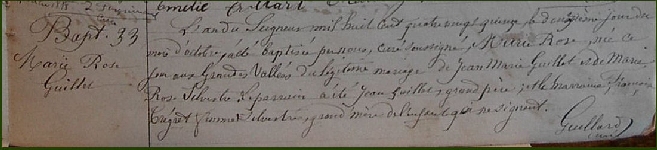 Bapt. 33
Marie Rose
Guillet
L'an du Seigneur mil huit cent quatre vingt quinze le deuxième jour du
mois d'octobre, a été baptisée par nous, curé soussigné, Marie Rose, née ce
jour aux Grandes Vallées du légitime mariage de Jean Marie Guillet et de Marie
Rose Silvestre. Le parrain a été Jean Guillet, grand père, et la marraine Françoise
femme Silvestre, grand mère de l'enfant qui ne signent.
Guillard